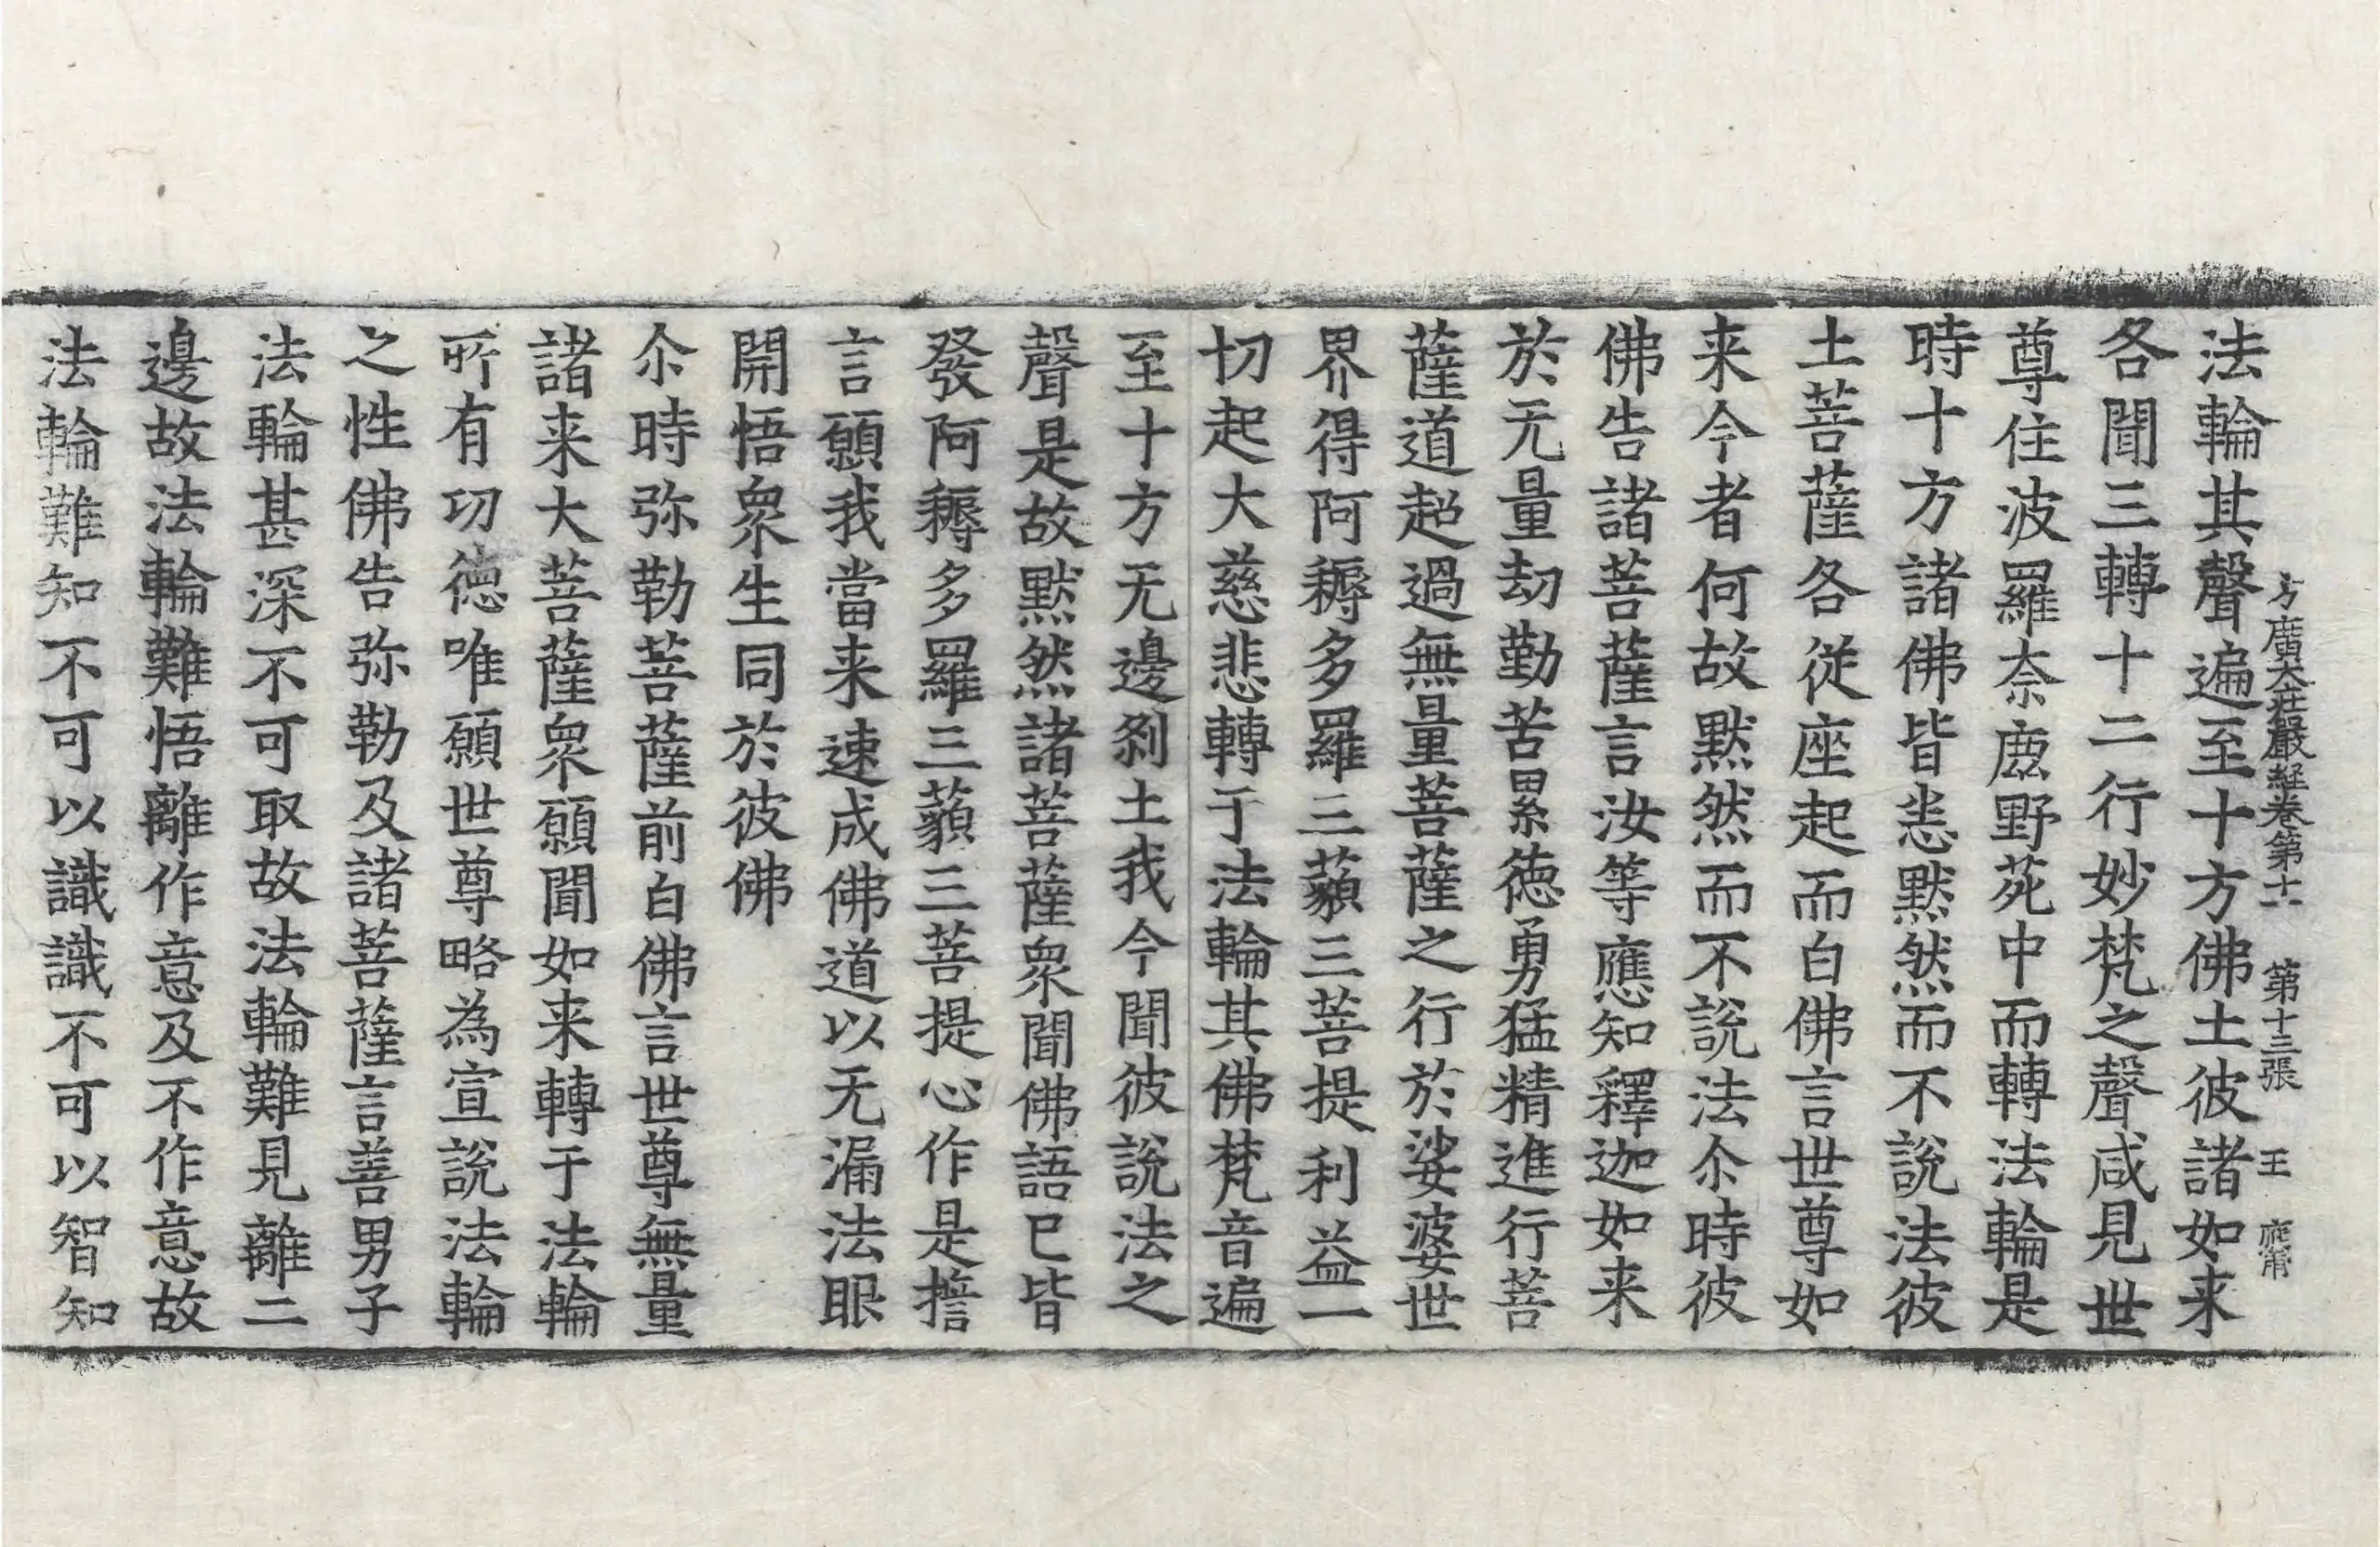 方廣大莊嚴経卷第十一 第十三張 王
法輪其聲遍至十方佛土彼諸如来
各聞三轉十二行妙梵之聲咸見世
尊住波羅柰鹿野苑中而轉法輪是
時十方諸佛皆悉默然而不說法彼
土菩薩各從座起而白佛言世尊如
来今者何故默然而不說法尒時彼
佛告諸菩薩言汝等應知釋迦如来
於无量劫勤苦累德勇猛精進行菩
薩道超過無量菩薩之行於娑婆世
界得阿耨多羅三藐三菩提利益一
切起大慈悲轉于法輪其佛梵音遍
至十方无邊刹土我今聞彼說法之
聲是故默然諸菩薩衆聞佛語已皆
發阿耨多羅三藐三菩提心作是擔
言願我當来速成佛道以无漏法眼
開悟衆生同於彼佛
尒時弥勒菩薩前白佛言世尊無量
諸来大菩薩衆願聞如来轉于法輪
所有功德唯願世尊略為宣說法輪
之性佛告弥勒及諸菩薩言善男子
法輪甚深不可取故法輪難見離二
邊故法輪難悟離作意及不作意故
法輪難知不可以識識不可以智知